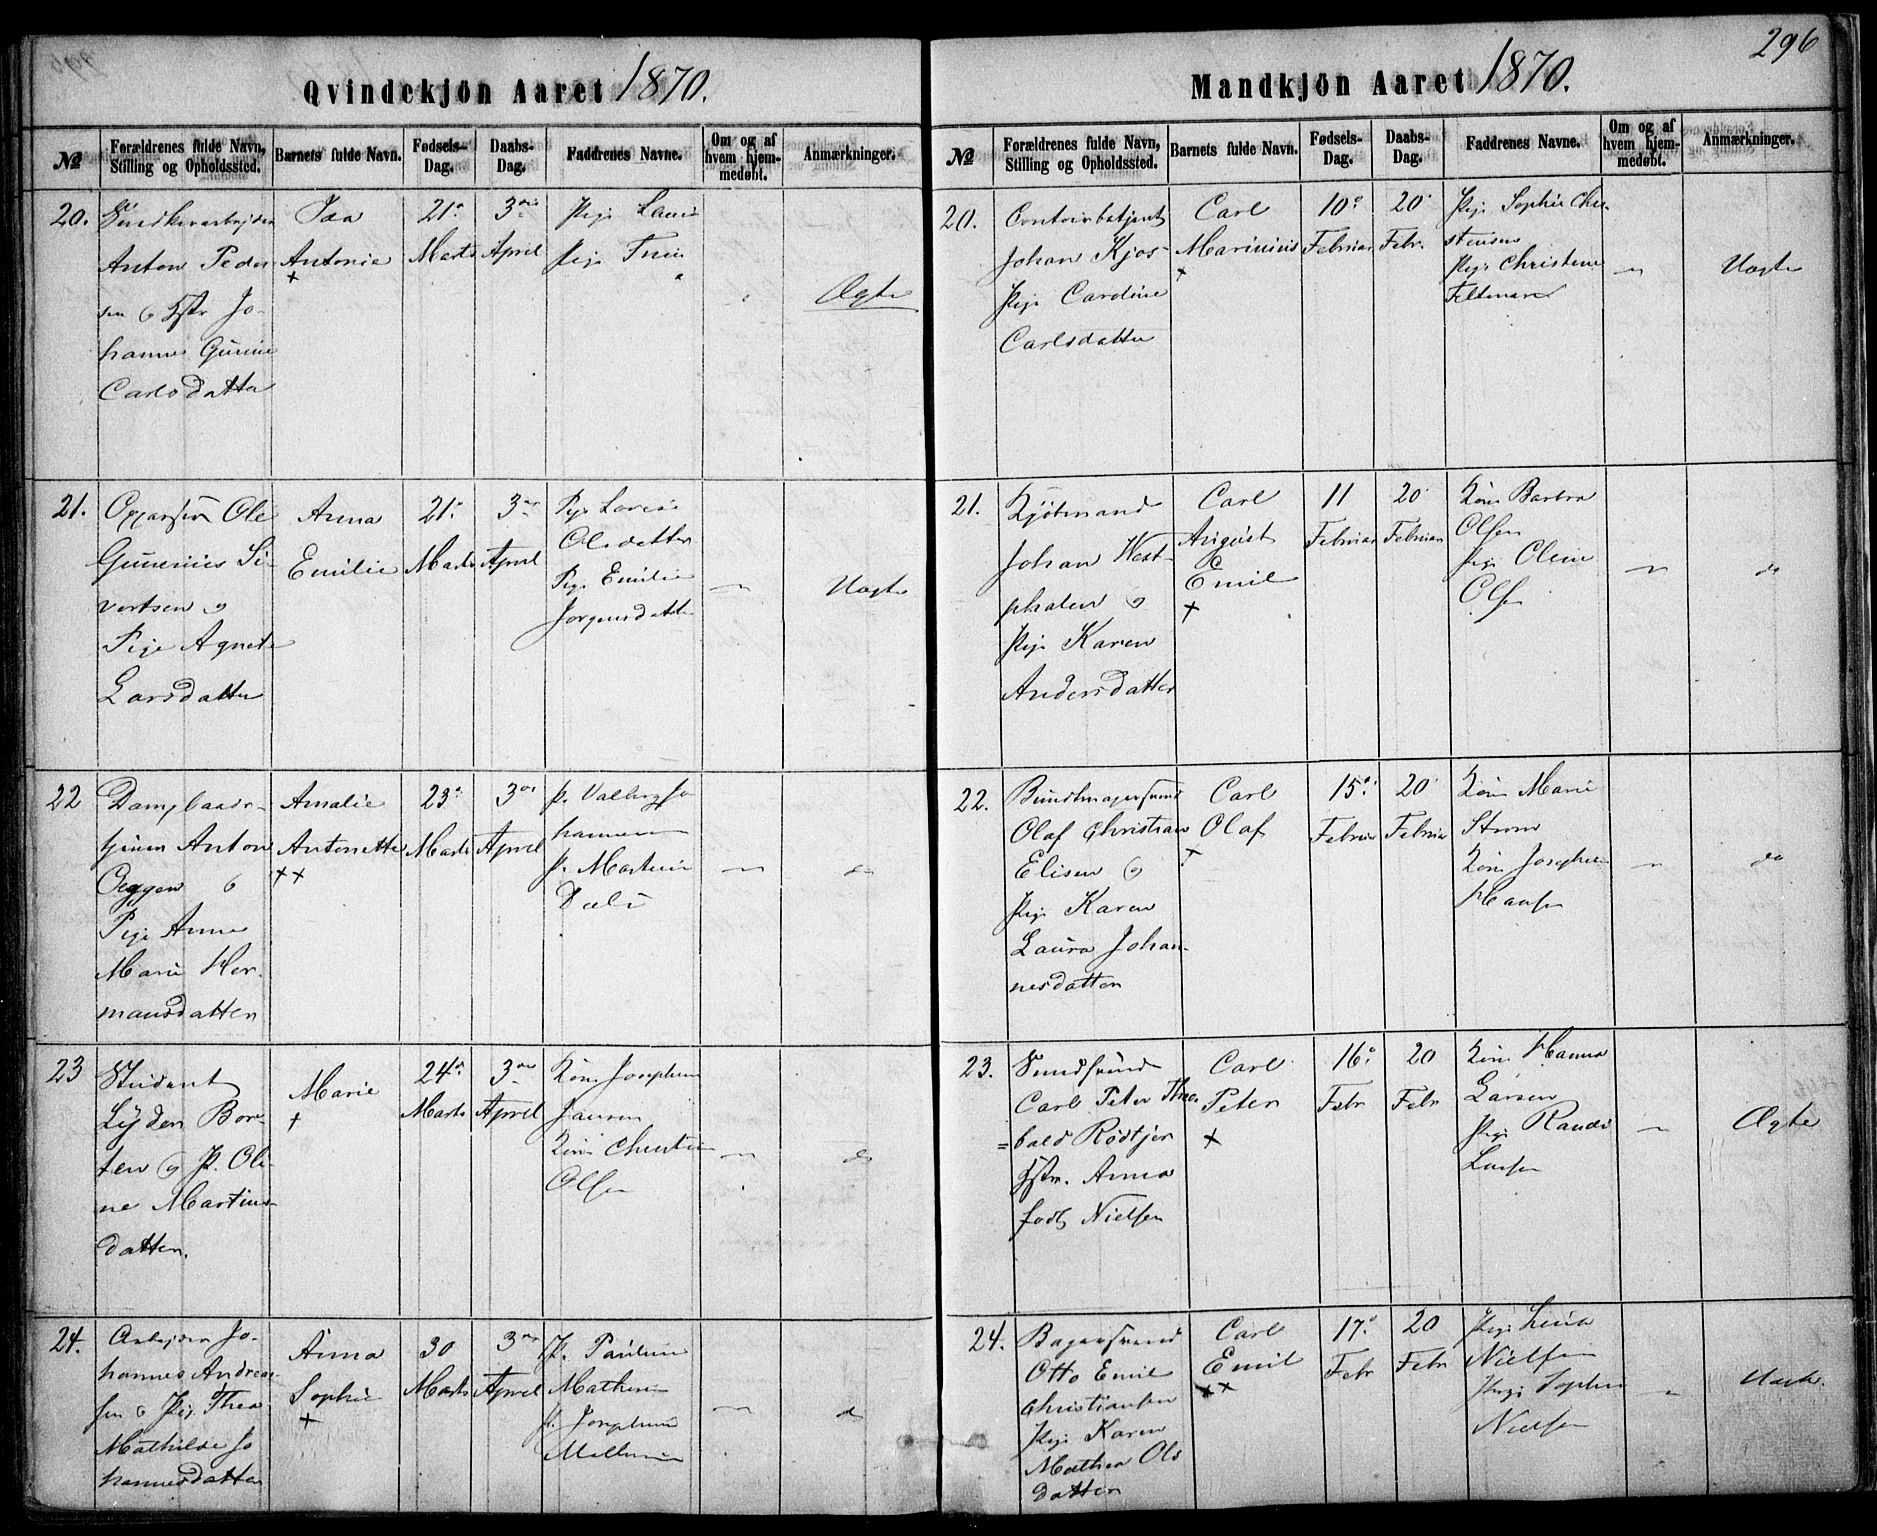 296
Qvindekjön Aaret 1870.
№
Forældrenes fulde Navn,
Stilling og Opholdssted.
Barnets fulde Navn.
Fødsels-
Dag.
Daabs-
Dag.
Faddrenes Navne.
Om og af
hvem hjem-
medøbt.
Anmærkninger.
20.
Anton Peder-
sen
Jo-
hanne
Carlsdatter
Ida
Antonia
+
21
Marts
3
April
Pige
Pige
Ægte
21.
Ole
Si-
vertsen
Pige Agnete
Larsdatter
Anna
Emilie
21
Marts
3
April
Pige
Olsdatter
Pige Emilie
Jorgensdatter
Uægte
22
Anton
Oeggen
Pige Anne
Marie Her-
mansdatter
Amalie
Antonette
++
23
Marts
3
April
P. Valborg Jo
hannesen
P.
do
23
Student
Bor-
ten P. Oli-
ne Martins-
datter.
Marie
+
24
Marts
3
April
Kone Josephine
Jansen
Kone
Olsen
do
24.
Arbejder Jo-
hannes Andrea-
sen Pig. Thea
Mathilde Jo
hannesdatter
Anna
Sophie
+
30
Marts
3
April
P. Pauline
P. Josephine
d
Mandkjön Aaret 1870.
№
Forældrenes fulde Navn,
Stilling og Opholdssted.
Barnets fulde Navn.
Fødsels-
Dag.
Daabs-
Dag.
Faddrenes Navne.
Om og af
hvem hjem-
medøbt.
Anmærkninger.
20.
Johan Kjos-
Pige Caroline
Carlsdatter
Carl
Marinius
+
10
Februar
20
Febr.
Pige Sophie Chri-
stensen
Pige Christine
Uægte
21.
Kjøbmand
Johan West-
phalen
Pige Karen
Andersdatter
Carl
August
Emil
+
11
Februar
20
Februar
Kone Barbra
Olsen
Pige Oline
Olsen
do
22.
Bundtmagersvend
Olaf Christian
Elisen
Pige Karen
Laura Johan-
nesdatter
Carl
Olaf
+
15
Februar
20
Februar
Kone Marie
Strøm
Kone Josephine
Hansen
do
23.
Carl Peter Theo
=bald Rödtjer
Hstr. Anna
født Nielsen
Carl
Peter
+
16
Febr
20
Febr
Kone Hanna
Larsen
Pige Randi
Larsen
Ægte
24.
Bagersvend
Otto Emil
Christiansen
Pige Karen
Mathea Ols
datter
Carl
Emil
++
17
Febr
20
Febr
Pige Lina
Nielsen
Pige Sophie
Nielsen
Uægte.